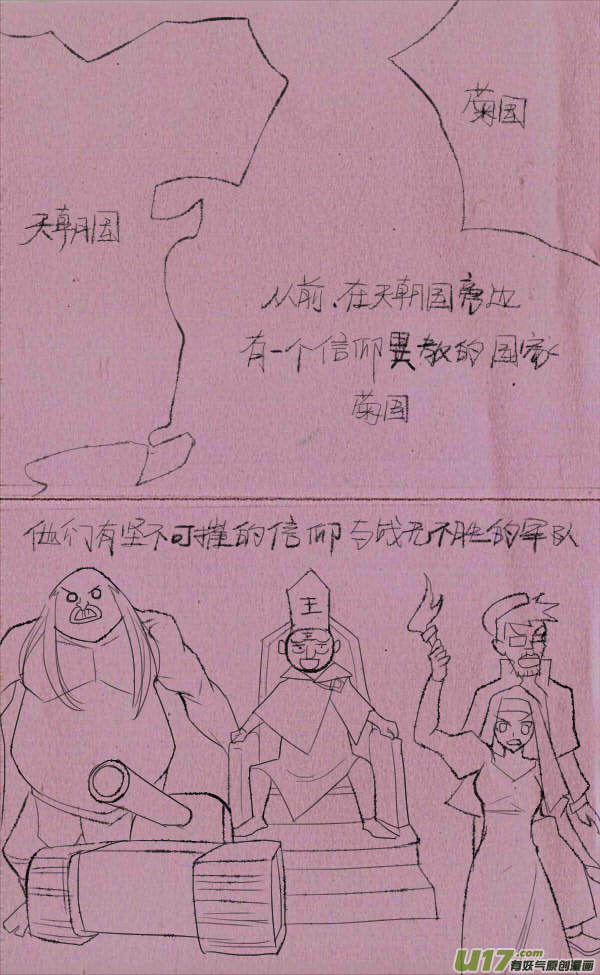 菊国
天朝国
从前、在天朝国旁边
有一个信仰異教的国家
菊国
他们有坚不可摧的信仰与战无不胜的军队
王
王
U17.com
有妖气原创漫画